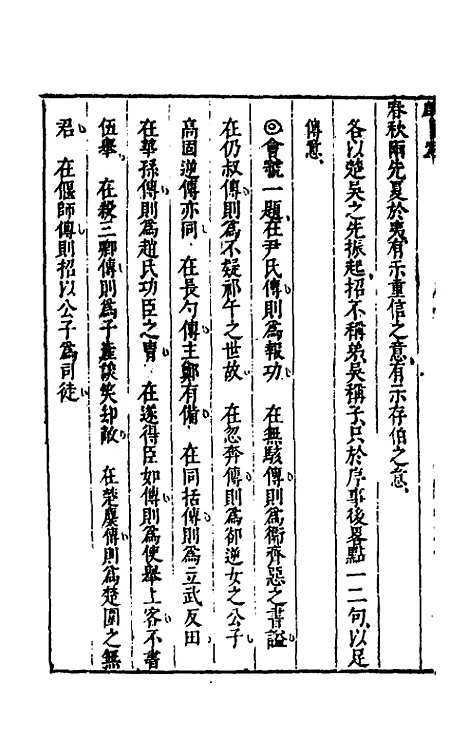 春秋兩先夏於夷有示重信之意有示存伯之意
各以楚吳之先振起招不稱弟吳稱子只於序事後畧點一二句以足
傳意
◎會虢一題在尹氏傳則為報功　在無駭傳則為衞齊惡之書謚
在仍叔傳則為不疑祁午之世故　在忽奔傳則為卻逆女之公子
高固逆傳亦同　在長勺傳主鄭有備　在同括傳則為立武反田
在華孫傳則為趙氏功臣之冑　在遂得臣如傳則為使舉上客不書
伍舉　在殺三卿傳則為子圍談笑却敵　在楚麇傳則為楚圍之無
君　在偃師傳則招以公子為司徒